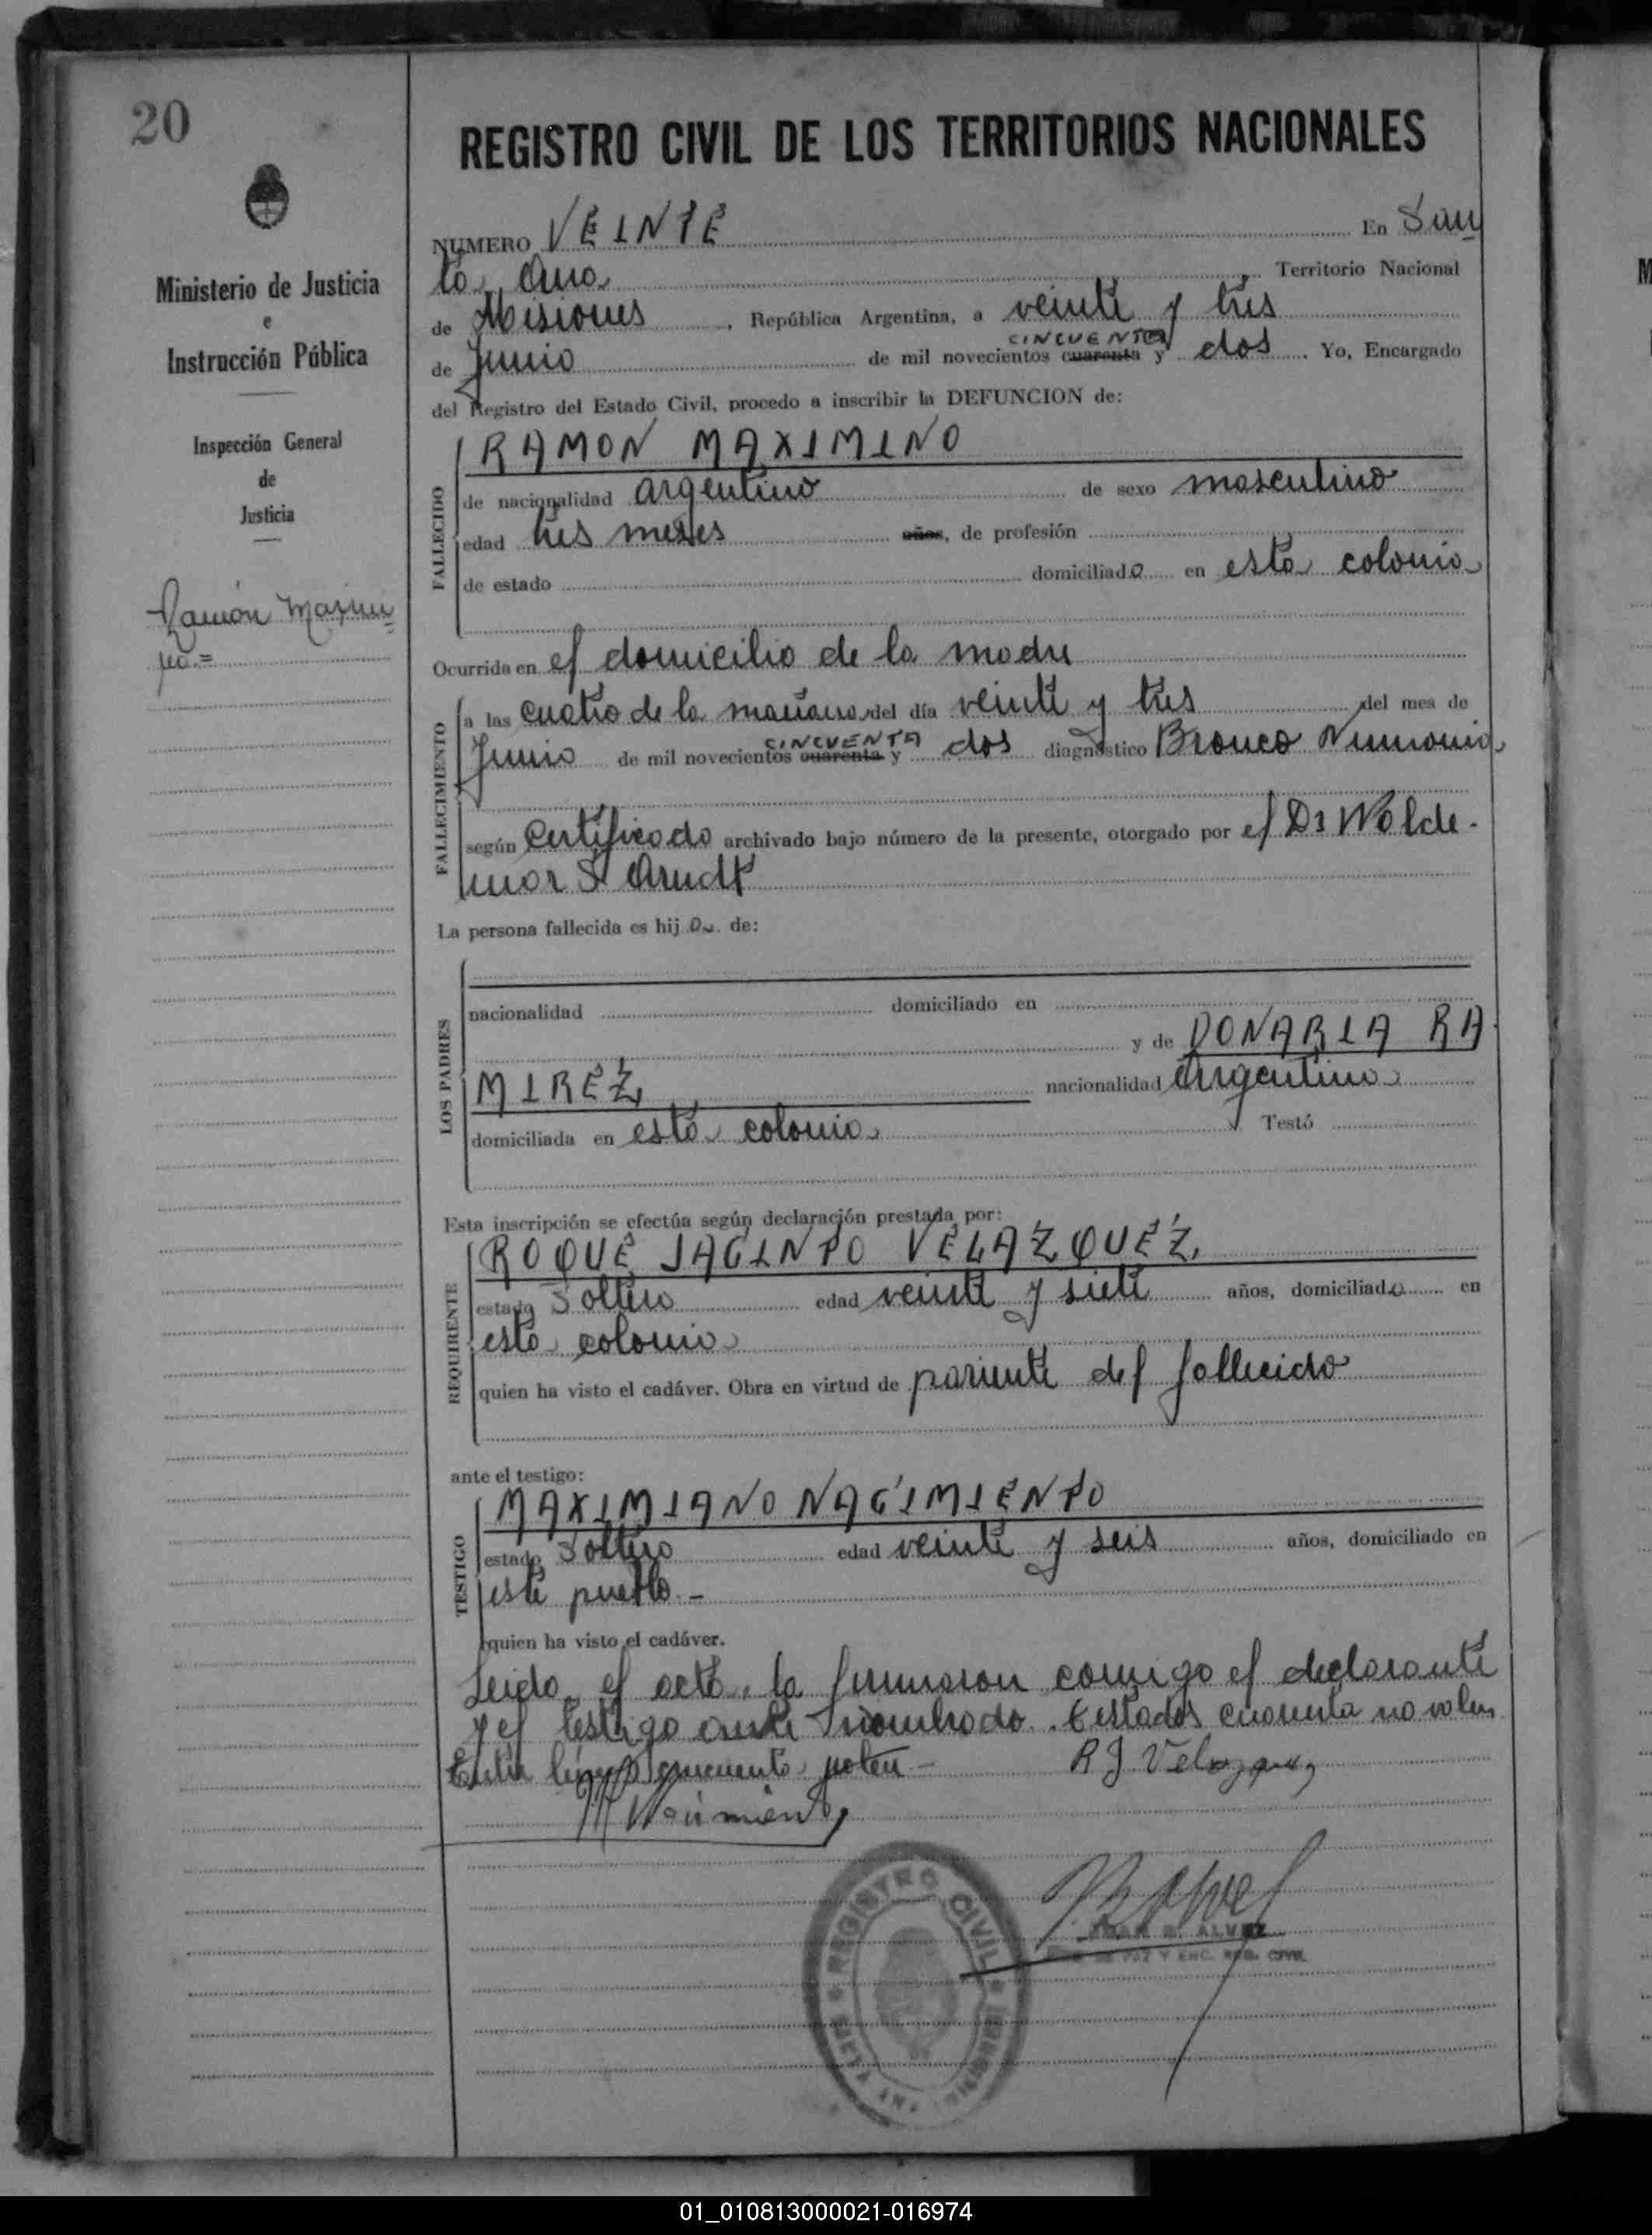 20
Ministerio de Justicia
e
Instrucción Pública
Inspección General
de
Justicia
Ramón Maximi
no.=
REGISTRO CIVIL DE LOS TERRITORIOS NACIONALES
NUMERO VEINTE En San
ta Ana Territorio Nacional
de Misiones, República Argentina, a veinte y tres
CINCUENTA
de Junio de mil novecientos cuarenta y dos. Yo, Encargado
del Registro del Estado Civil, procedo a inscribir la DEFUNCION de:
FALLECIDO
RAMON MAXIMINO
de nacionalidad argentino de sexo masculino
edad tres meses años, de profesión
de estado domiciliado en esta colonia
Ocurrida en el domicilio de la madre
FALLECIMIENTO
a las cuatro de la mañana del día veinte y tres del mes de
CINCUENTA
Junio de mil novecientos cuarenta y dos diagnóstico Bronco Numonia
según Certificado archivado bajo número de la presente, otorgado por el Dr Wolde-
mor Arndt
La persona fallecida es hijo de:
LOS PADRES
nacionalidad domiciliado en
y de DONARIA RA
MIREZ nacionalidad Argentina
domiciliada en esta colonia Testó
Esta inscripción se efectúa según declaración prestada por:
REQUIRENTE
ROQUE JACINTO VELAZQUEZ
estado Soltero edad veinte y siete años, domiciliado en
esta colonia
quien ha visto el cadáver. Obra en virtud de pariente del fallecido
ante el testigo:
TESTIGO
MAXIMIANO NACIMIENTO
estado Soltero edad veinte y seis años, domiciliado en
este pueblo.-
quien ha visto el cadáver.
Leida el acta, la firmaron conmigo el declarante
y el testigo ante nombrado. Testados cuarenta no valen
Entre lineas cincuenta valen-
R J Velazquez
M Nacimiento
REGISTRO CIVIL
SANTA ANA
JUAN B. ALVEZ
JUEZ DE PAZ Y ENC. REG. CIVIL
01_010813000021-016974